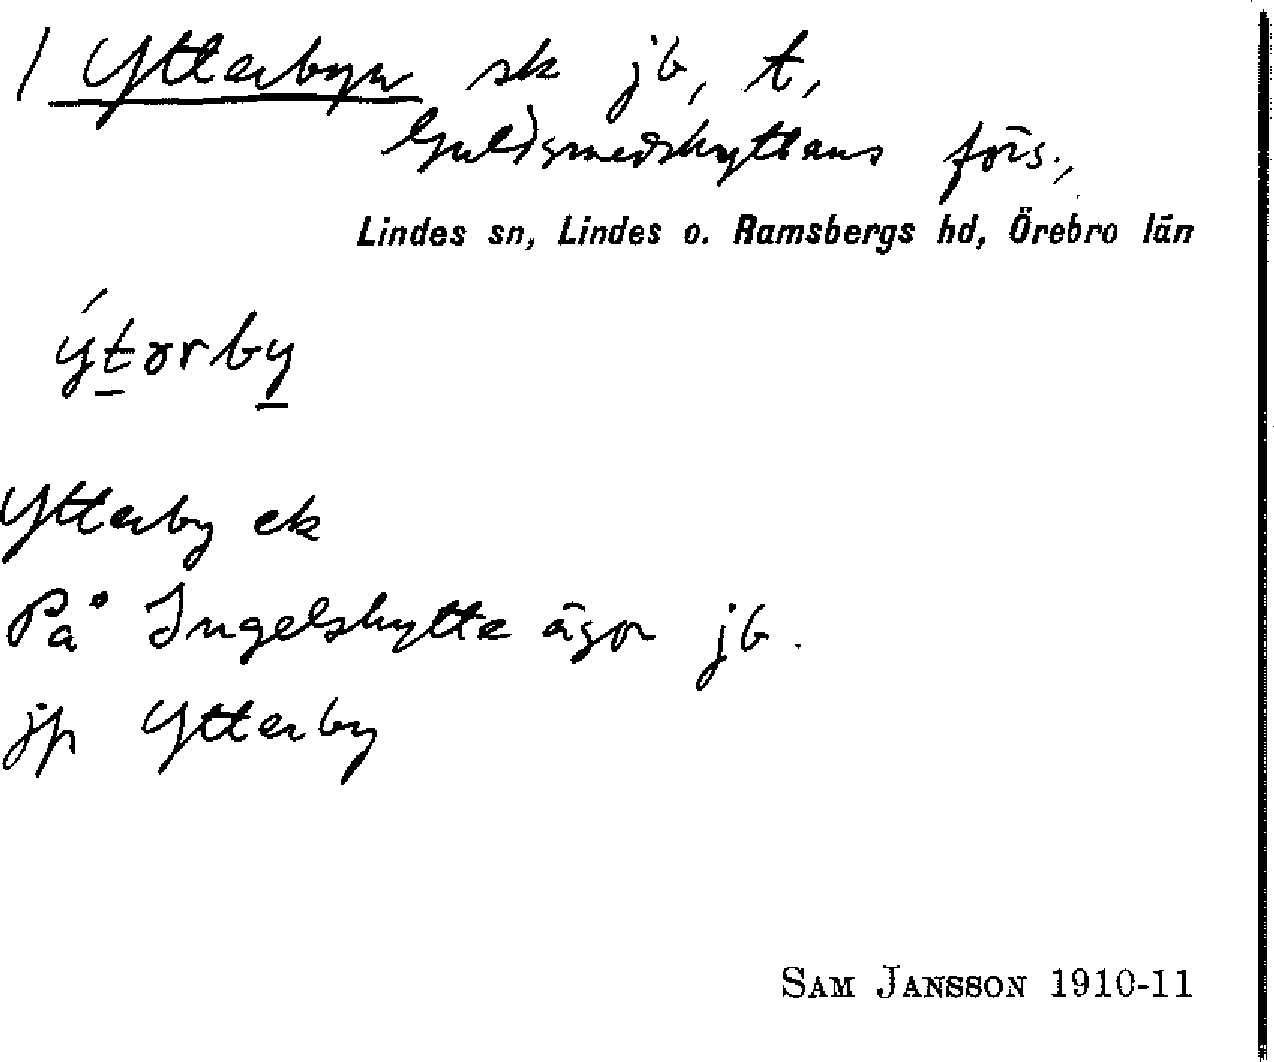 / Ytterbyn sk jb, t,
Guldsmedshyttans förs.,
Lindes sn, Lindes o. Ramsbergs hd, Örebro län
ýtərby
Ytterby ek
På Ingelshytte ägor jb.
jp Ytterby
SAM JANSSON 1910-11